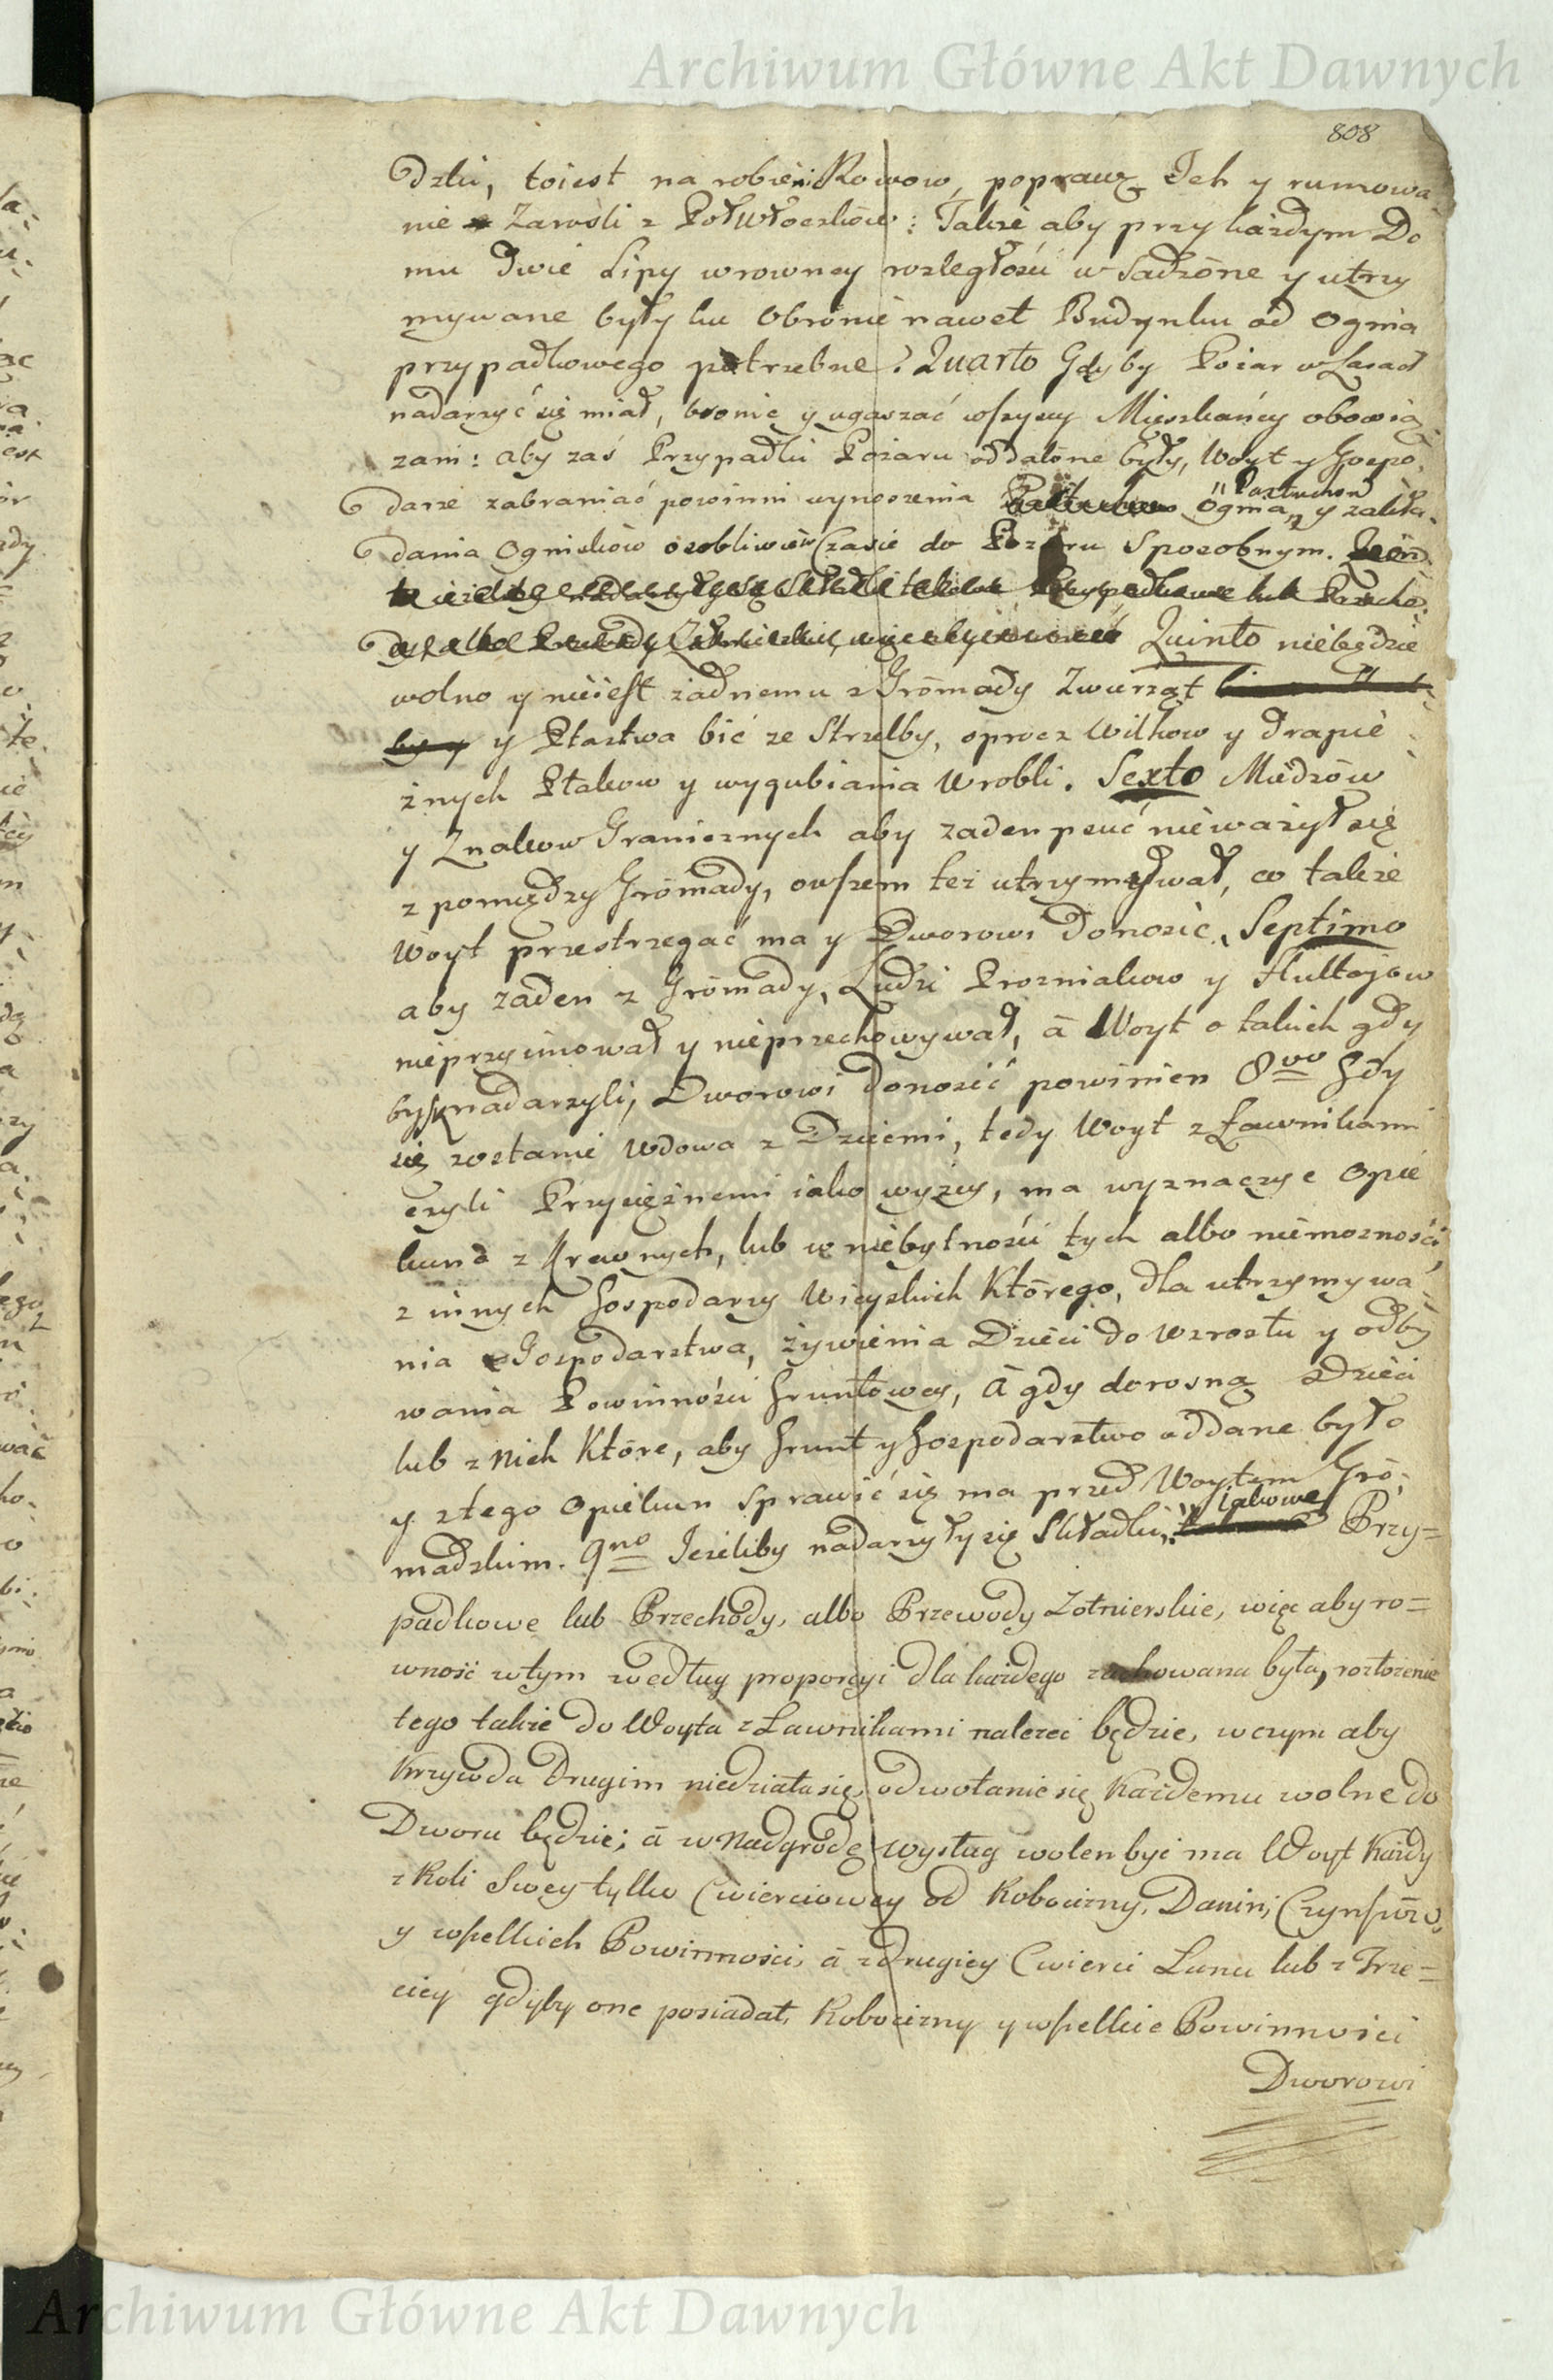 Archiwum Główne Akt Dawnych
808
dzki, toiest na robieni Rowow, poprawę Ich y rumowa
nie Zarośli z Połwłoczków: Także aby przy każdym Do
mu dwie Lipy w rowney rozległości w sadzōne y utrzy
mywane były ku Obrōnie nawet Budynku od Ognia
przypadkowego potrzebne. Quarto Gdyby Pożar w Lasach
nadarzyć się miał, bronić y ugaszać wszyscy Mieszkańcy obowią
zani: aby zaś Przypadki Pożaru oddalōne były, Woyt y Gospo
darze zabraniać powinni wynoszenia Pastuchow Ognia, y zakła
dania Ogniskōw osobliwie w Czasie do Pożaru Sposobnym.
Quinto niebędzie
wolno y nieiest żadnemu z Grōmady Zwierząt
y Ptastwa bić ze Strzelby, oprocz Wilkow y drapie
żnych Ptakow y wygubiania Wrobli. Sexto Miedzōw
y Znakow Granicznych aby zaden psuć nieważył się
z pomiędzy Grōmady, owszem też utrzymywał, co także
Woyt przestrzegać ma y Dworowi Donosić, Septimo
aby zaden z Grōmady, Ludzi Prozniakow y Hultajow
nieprzyimował y nieprzechowywał, ā Woyt o takich gdy
by się nadarzyli, Dworowi donosić powinien 8vo Gdy
się zostanie Wdowa z Dziećmi, tedy Woyt z Ławnikami
czyli Przysiężnemi iako wyżey, ma wyznaczyć Opie
kuna z Krewnych, lub w niebytności tych albo niemozności
z innych Gospodarzy Wieyskich Ktōrego, dla utrzymywa
nia Gospodarstwa, żywienia Dzieci do Wzrostu y odby
wania Powinności Gruntowey, ā gdy dorosną Dzieci
lub z Nich Ktōre, aby Grunt y Gospodarstwo oddane było
y ztego Opiekun sprawić się ma przed Woytem Grō
madzkim. 9no Jeżeliby nadarzyły się Składki, iakowe Przy=
padkowe lub Przechody, albo Przewody Zołnierskie, więc aby ro=
wność wtym według proporcyi dla każdego zachowana była, rozłożenie
tego także do Woyta z Ławnikami należeć będzie, w czym aby
Krzywda Drugim niedziała się, odwołanie się Każdemu wolne do
Dworu będzie; ā w Nadgrodę wysług wolen być ma Woyt Każdy
z Roli Swey tylko Cwierciowey od Robocizny, Danin, Czynszōw,
y wszelkich Powinności, ā z drugiey Cwierci Łanu lub z Trze=
ciey gdyby one posiadał, Robocizny y wszelkie Powinności
Dworowi
Archiwum Główne Akt Dawnych